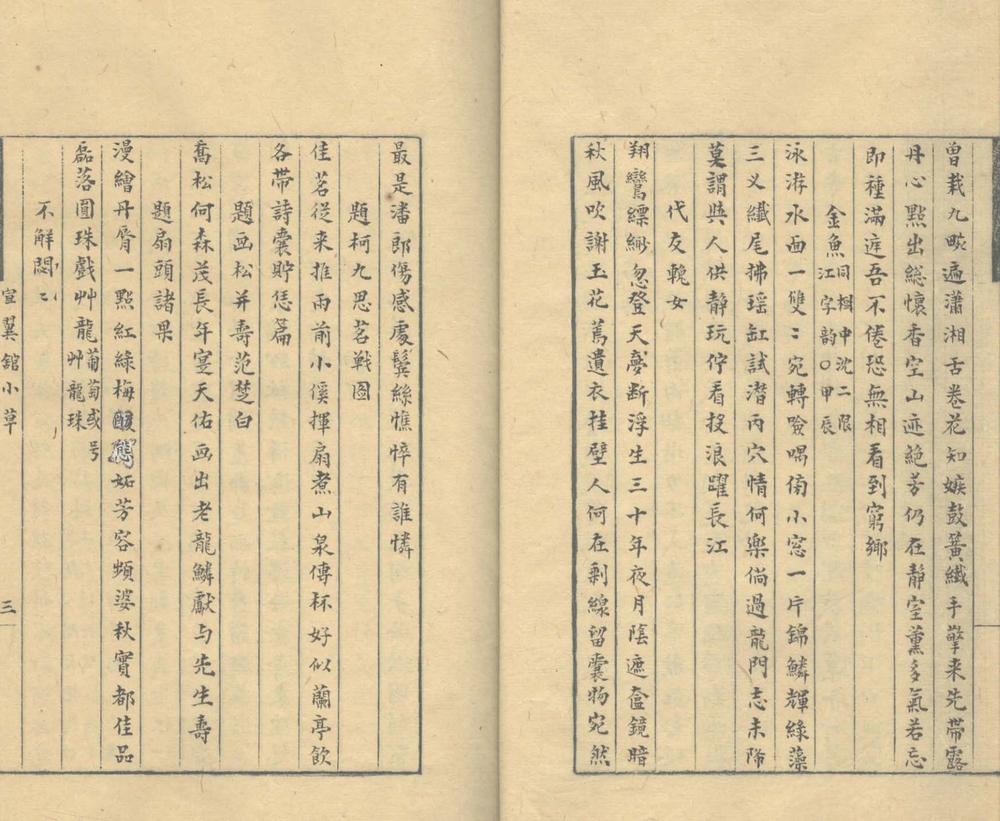 曾栽九畹遍瀟湘舌卷花知嫉鼓簧纖手擎来先帶露
丹心點出総懷香空山迹絶芳仍在靜室薰多氣若忘
即種滿庭吾不倦恐無相看到窮鄉
金魚同楫中沈二限
江字韵〇甲辰
泳游水面一雙〻宛轉噞喁傍小窓一片錦鱗輝綠藻
三义纖尾拂瑶缸試潜丙穴情何樂倘過龍門志未降
莫謂與人供靜玩佇看投浪躍長江
代友輓女
翔鸞縹緲忽登天夢断浮生三十年夜月陰遮奩鏡暗
秋風吹謝玉花蔫遺衣挂壁人何在剩線留囊物宛然
最是潘郎傷感處鬓絲憔悴有誰憐
題柯九思茗戦图
佳茗従来推雨前小僕揮扇煮山泉傳杯好似蘭亭飲
各帶詩囊貯恁篇
題画松并壽范楚白
喬松何森茂長年寔天佑画出老龍鱗獻与先生壽
題扇頭諸果
漫繪丹脣一點紅綠梅酸妬芳容頻婆秋實都佳品
磊落圓珠戲艸龍葡萄或号
艸龍珠
不解悶〻
室翼舘小草
三